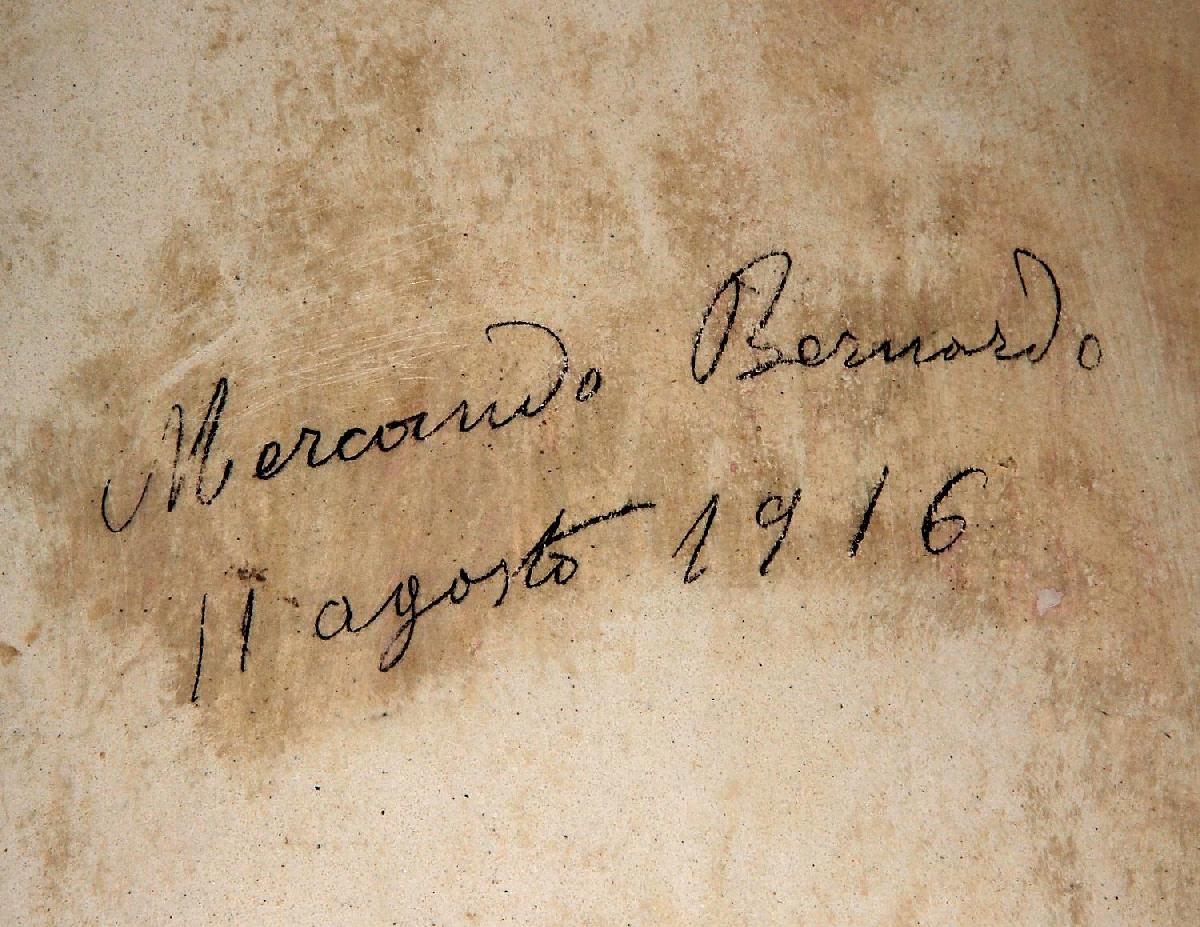 Mercando Bernardo
11 agosto 1916